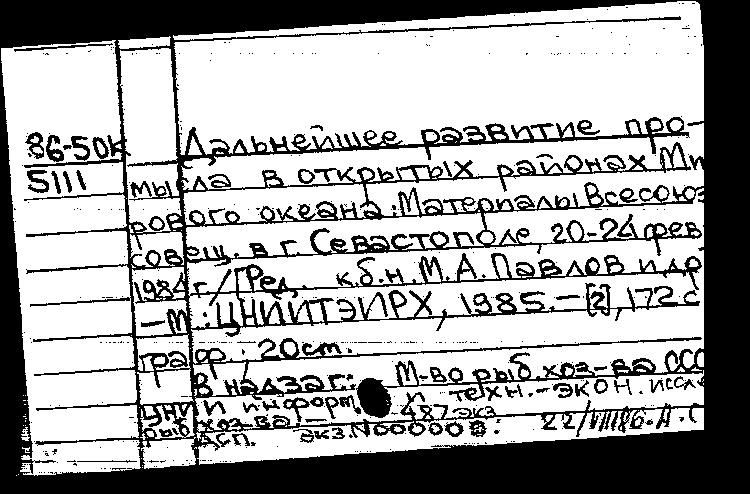 86-50к Дальнейшее развитие про-
5111 мысла в открытых районах Ми
рового океана: Материалы Всесоюз
совещ. в г. Севастополе, 20-24 фев
1984 г. / [Ред. к.б.н. М.А. Павлов и др
— М.: ЦНИИТЭИРХ, 1985. — [2], 172 с
граф.; 20 cm.
В надзаг.: М-во рыб. хоз-ва ССС
ЦНИИ информ. и техн.-экон. иссле
рыб. хоз-ва. — 487 экз
ДСП. Экз. N 000008: 22/VIII86-А.С